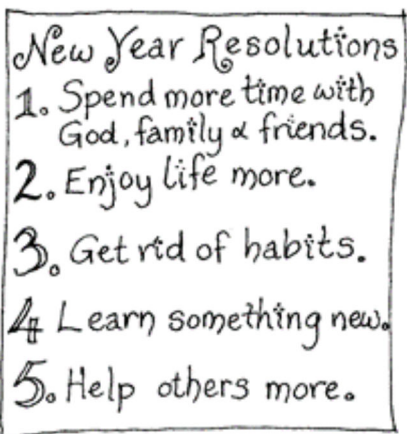 New Year Resolutions
1. Spend more time with
God, family & friends.
2. Enjoy life more.
3. Get rid of habits.
4 Learn something new.
5. Help others more.